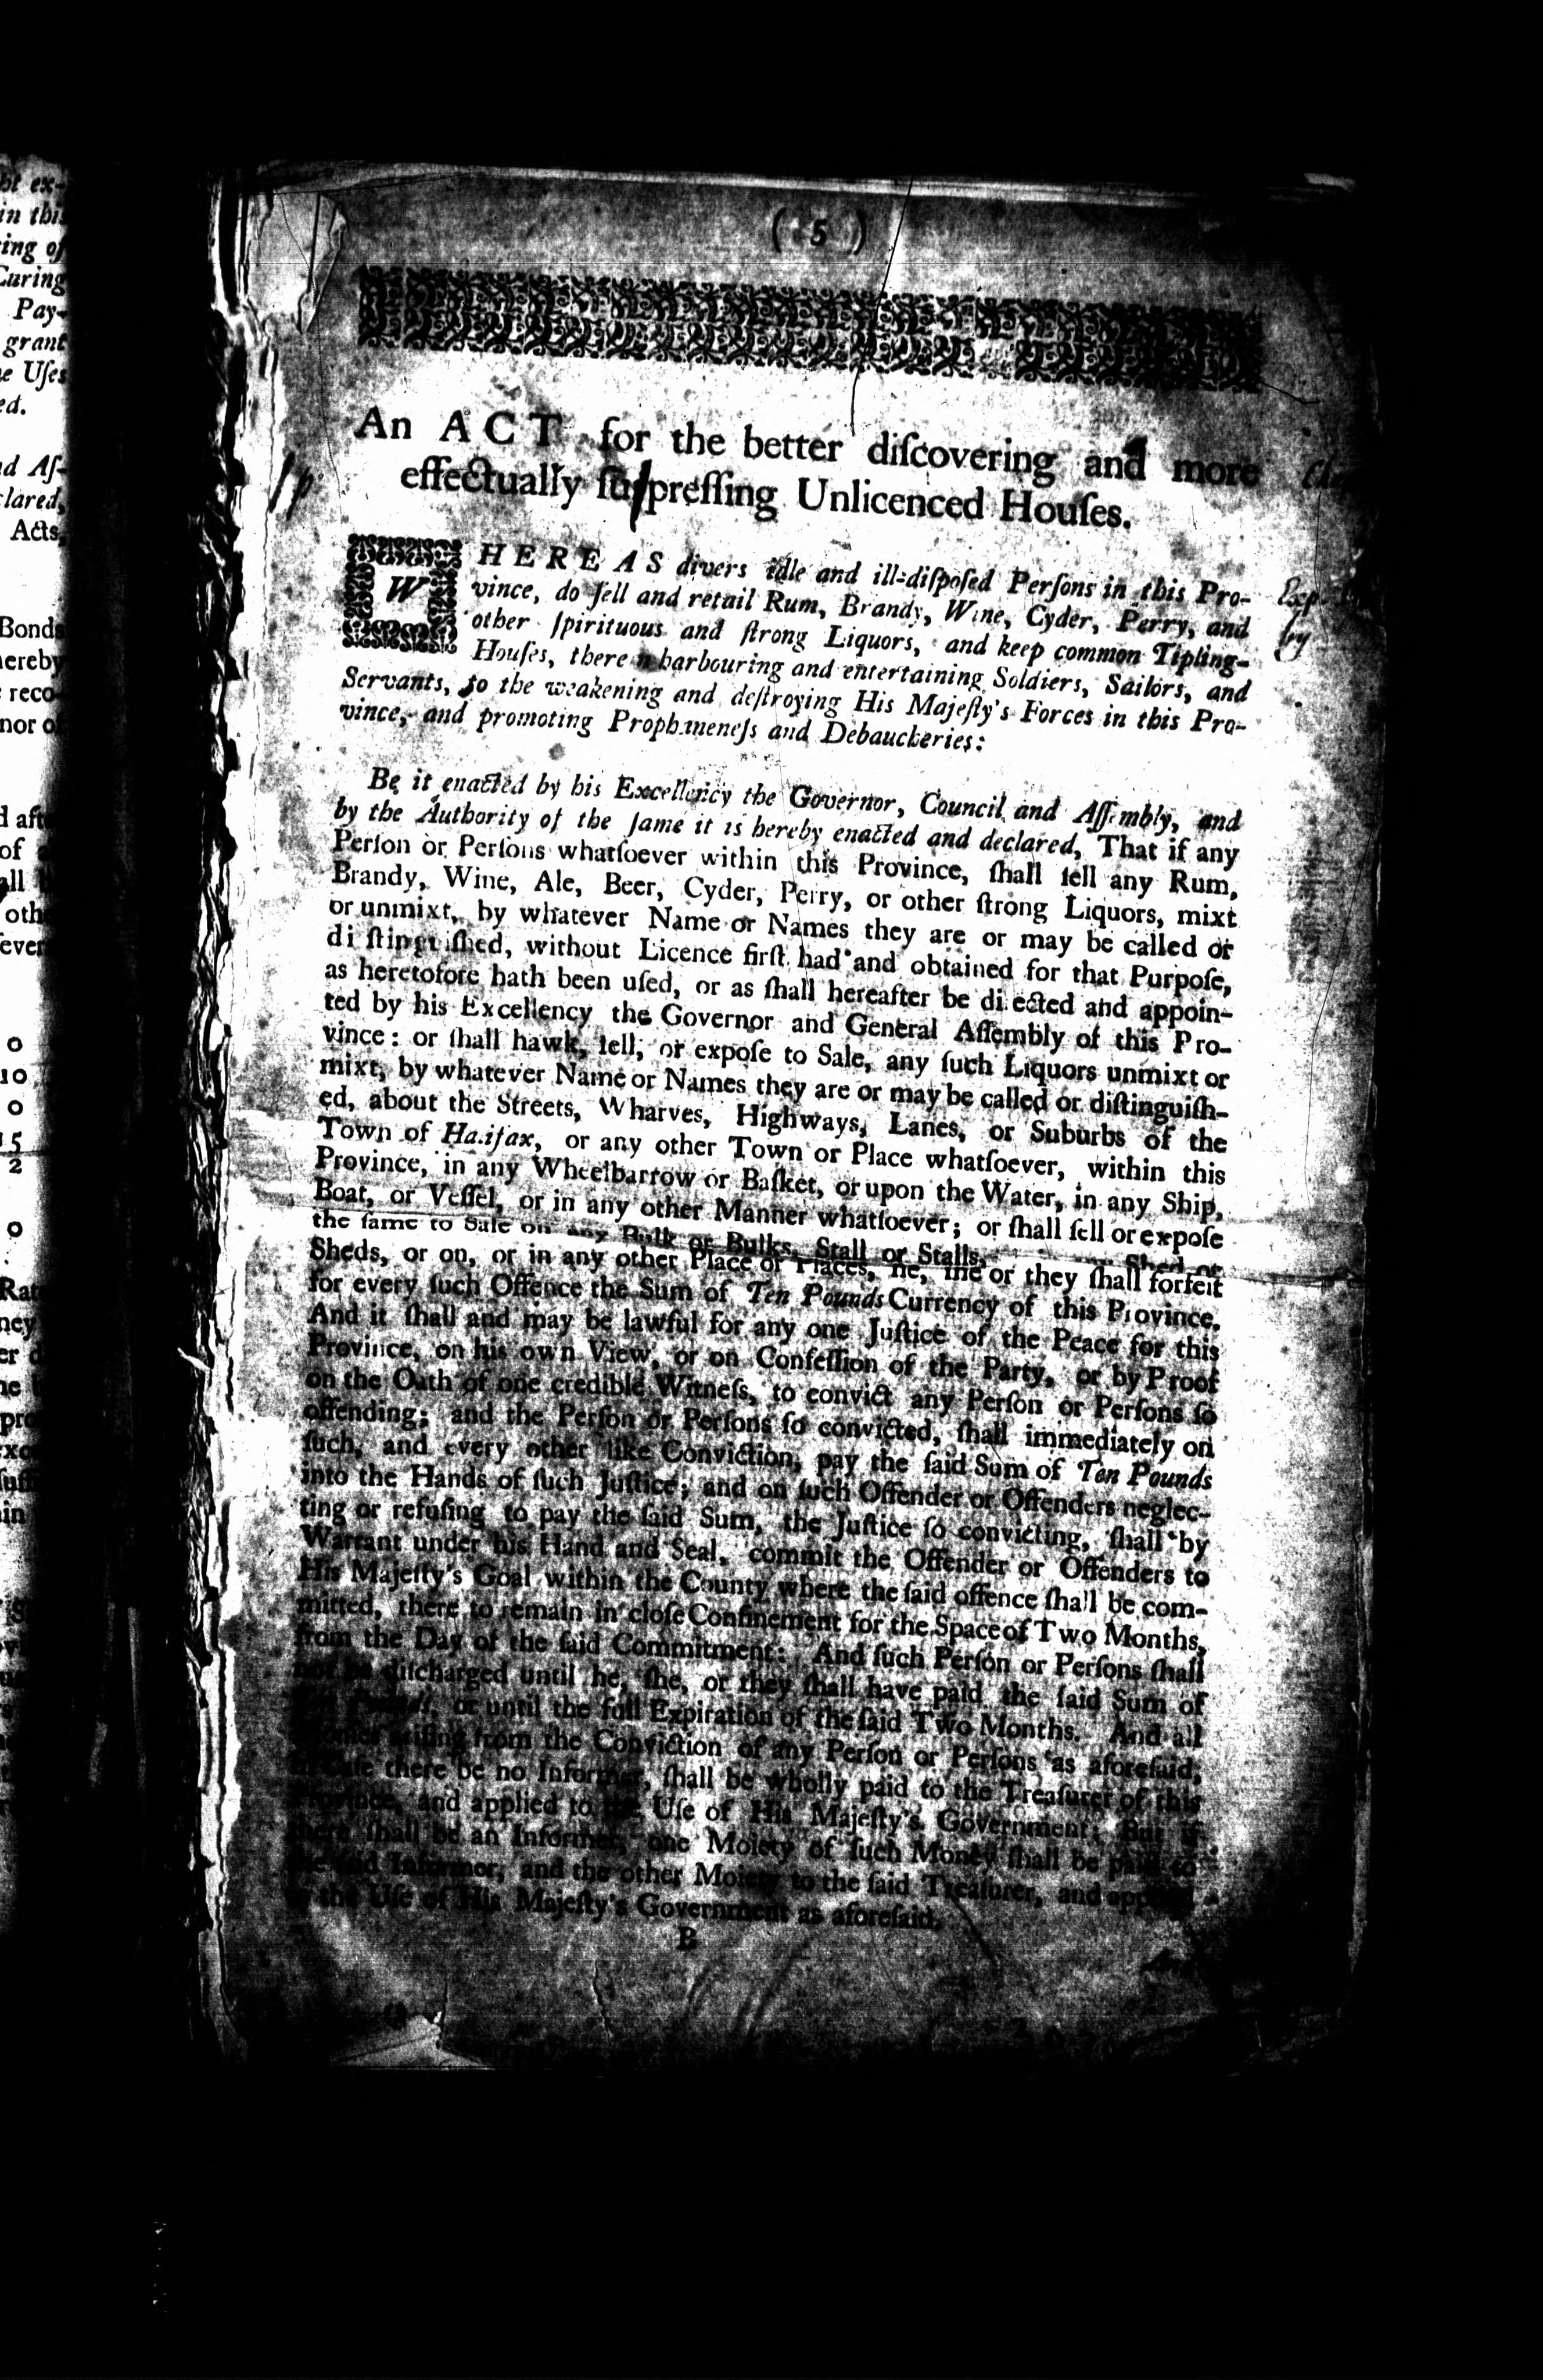 ( 5 )
An ACT for the better diſcovering and more
effectually ſuppreſſing Unlicenced Houſes.
WHEREAS divers idle and ill-diſpoſed Perſons in this Pro-
vince, do ſell and retail Rum, Brandy, Wine, Cyder, Perry, and
other ſpirituous and ſtrong Liquors, and keep common Tipling-
Houſes, therein harbouring and entertaining Soldiers, Sailors, and
Servants, to the weakening and deſtroying His Majeſty's Forces in this Pro-
vince, and promoting Prophaneneſs and Debaucheries:
Be it enacted by his Excellency the Governor, Council and Aſſembly, and
by the Authority of the ſame it is hereby enacted and declared, That if any
Perſon or Perſons whatſoever within this Province, ſhall ſell any Rum,
Brandy, Wine, Ale, Beer, Cyder, Perry, or other ſtrong Liquors, mixt
or unmixt, by whatever Name or Names they are or may be called or
diſtinguiſhed, without Licence firſt had and obtained for that Purpoſe,
as heretofore hath been uſed, or as ſhall hereafter be directed and appoin-
ted by his Excellency the Governor and General Aſſembly of this Pro-
vince: or ſhall hawk, ſell, or expoſe to Sale, any ſuch Liquors unmixt or
mixt, by whatever Name or Names they are or may be called or diſtinguiſh-
ed, about the Streets, Wharves, Highways, Lanes, or Suburbs of the
Town of Halifax, or any other Town or Place whatſoever, within this
Province, in any Wheelbarrow or Baſket, or upon the Water, in any Ship,
Boat, or Veſſel, or in any other Manner whatſoever; or ſhall ſell or expoſe
the ſame to Sale on any Bulk or Bulks, Stall or Stalls, Shed or
Sheds, or on, or in any other Place or Places, he, ſhe or they ſhall forfeit
for every ſuch Offence the Sum of Ten Pounds Currency of this Province.
And it ſhall and may be lawful for any one Juſtice of the Peace for this
Province, on his own View, or on Confeſſion of the Party, or by Proof
on the Oath of one credible Witneſs, to convict any Perſon or Perſons ſo
offending; and the Perſon or Perſons ſo convicted, ſhall immediately on
ſuch, and every other like Conviction, pay the ſaid Sum of Ten Pounds
into the Hands of ſuch Juſtice; and on ſuch Offender or Offenders neglec-
ting or refuſing to pay the ſaid Sum, the Juſtice ſo convicting, ſhall by
Warrant under his Hand and Seal, commit the Offender or Offenders to
His Majeſty's Goal within the County where the ſaid offence ſhall be com-
mitted, there to remain in cloſe Confinement for the Space of Two Months,
from the Day of the ſaid Commitment: And ſuch Perſon or Perſons ſhall
not be diſcharged until he, ſhe, or they ſhall have paid the ſaid Sum of
Pounds, or until the full Expiration of the ſaid Two Months. And all
ariſing from the Conviction of any Perſon or Perſons as aforeſaid,
in Caſe there be no Informer, ſhall be wholly paid to the Treaſurer of this
Province, and applied to the Uſe of His Majeſty's Government; But if
there ſhall be an Informer, one Moiety of ſuch Money ſhall be paid to
ſaid Informer, and the other Moiety to the ſaid Treaſurer, and applied
the Uſe of His Majeſty's Government as aforeſaid.
B